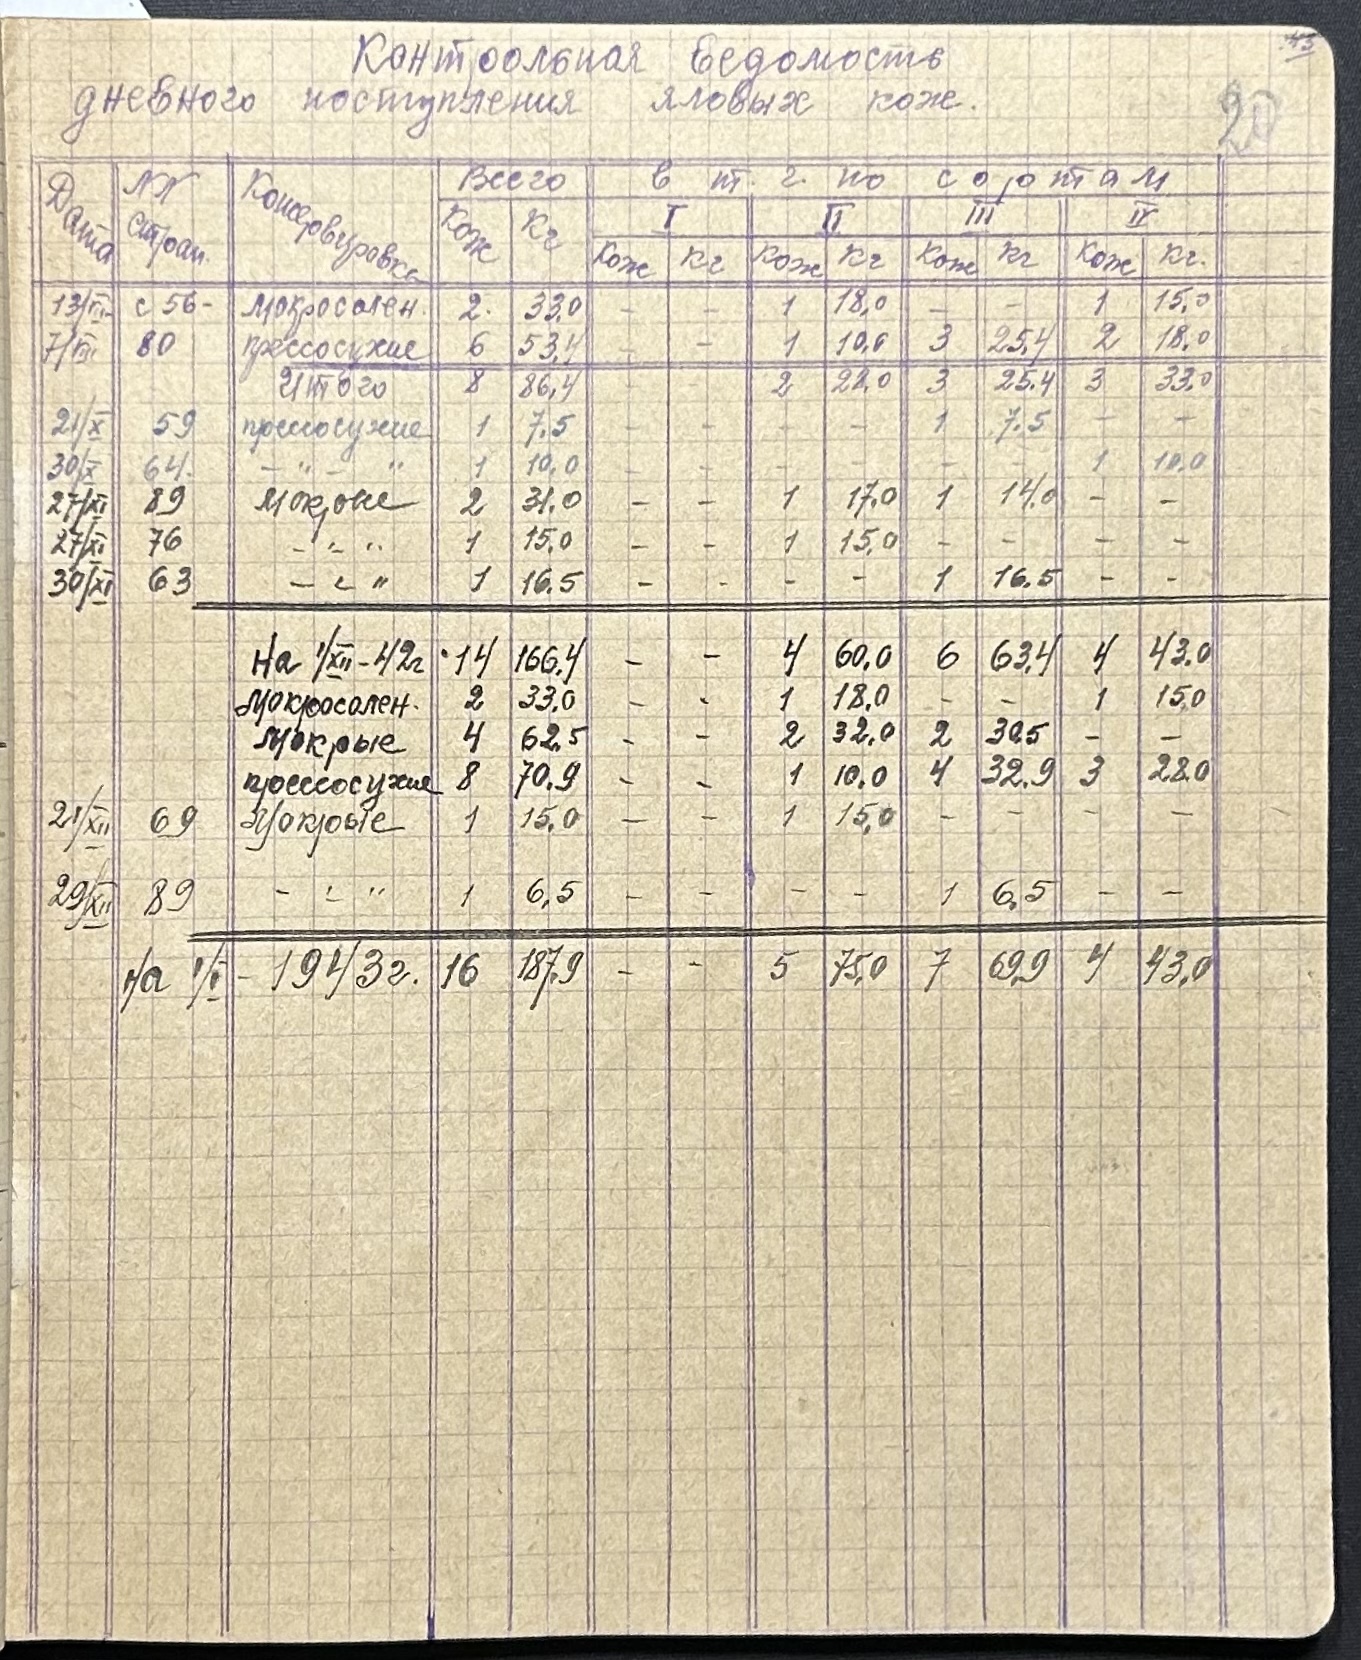 43
Контрольная ведомость
дневного поступления яловых кож.
20
Дата №№ стран. Консервировка Всего в т. ч. по сортам
I II III IV
Кож Кг Кож Кг Кож Кг Кож Кг Кож Кг.
13/ с 56- Мокросолен. 2. 33,0 - - 1 18,0 - - 1 15,0
7/ 80 прессосухие 6 53,4 - - 1 10,0 3 25,4 2 18,0
Итого 8 86,4 - - 2 28,0 3 25,4 3 33,0
21/X 59 прессосухие 1 7.5 - - - - 1 7.5 - -
30/X 64. - " - " 1 10,0 - - - - - - 1 10,0
27/XI 89 Мокрые 2 31.0 - - 1 17.0 1 14.0 - -
27/XI 76 - " - " 1 15,0 - - 1 15,0 - - - -
30/XI 63 - " - " 1 16.5 - - - - 1 16.5 - -
На 1/XII - 42г. 14 166,4 - - 4 60,0 6 63,4 4 43.0
Мокросолен. 2 33,0 - - 1 18,0 - - 1 15,0
Мокрые 4 62,5 - - 2 32,0 2 30,5 - -
прессосухие 8 70.9 - - 1 10,0 4 32.9 3 28.0
21/XII 69 Мокрые 1 15,0 - - 1 15,0 - - - -
29/XII 89 - " - " 1 6,5 - - - - 1 6,5 - -
На 1/I - 1943г. 16 187,9 - - 5 75,0 7 69,9 4 43,0